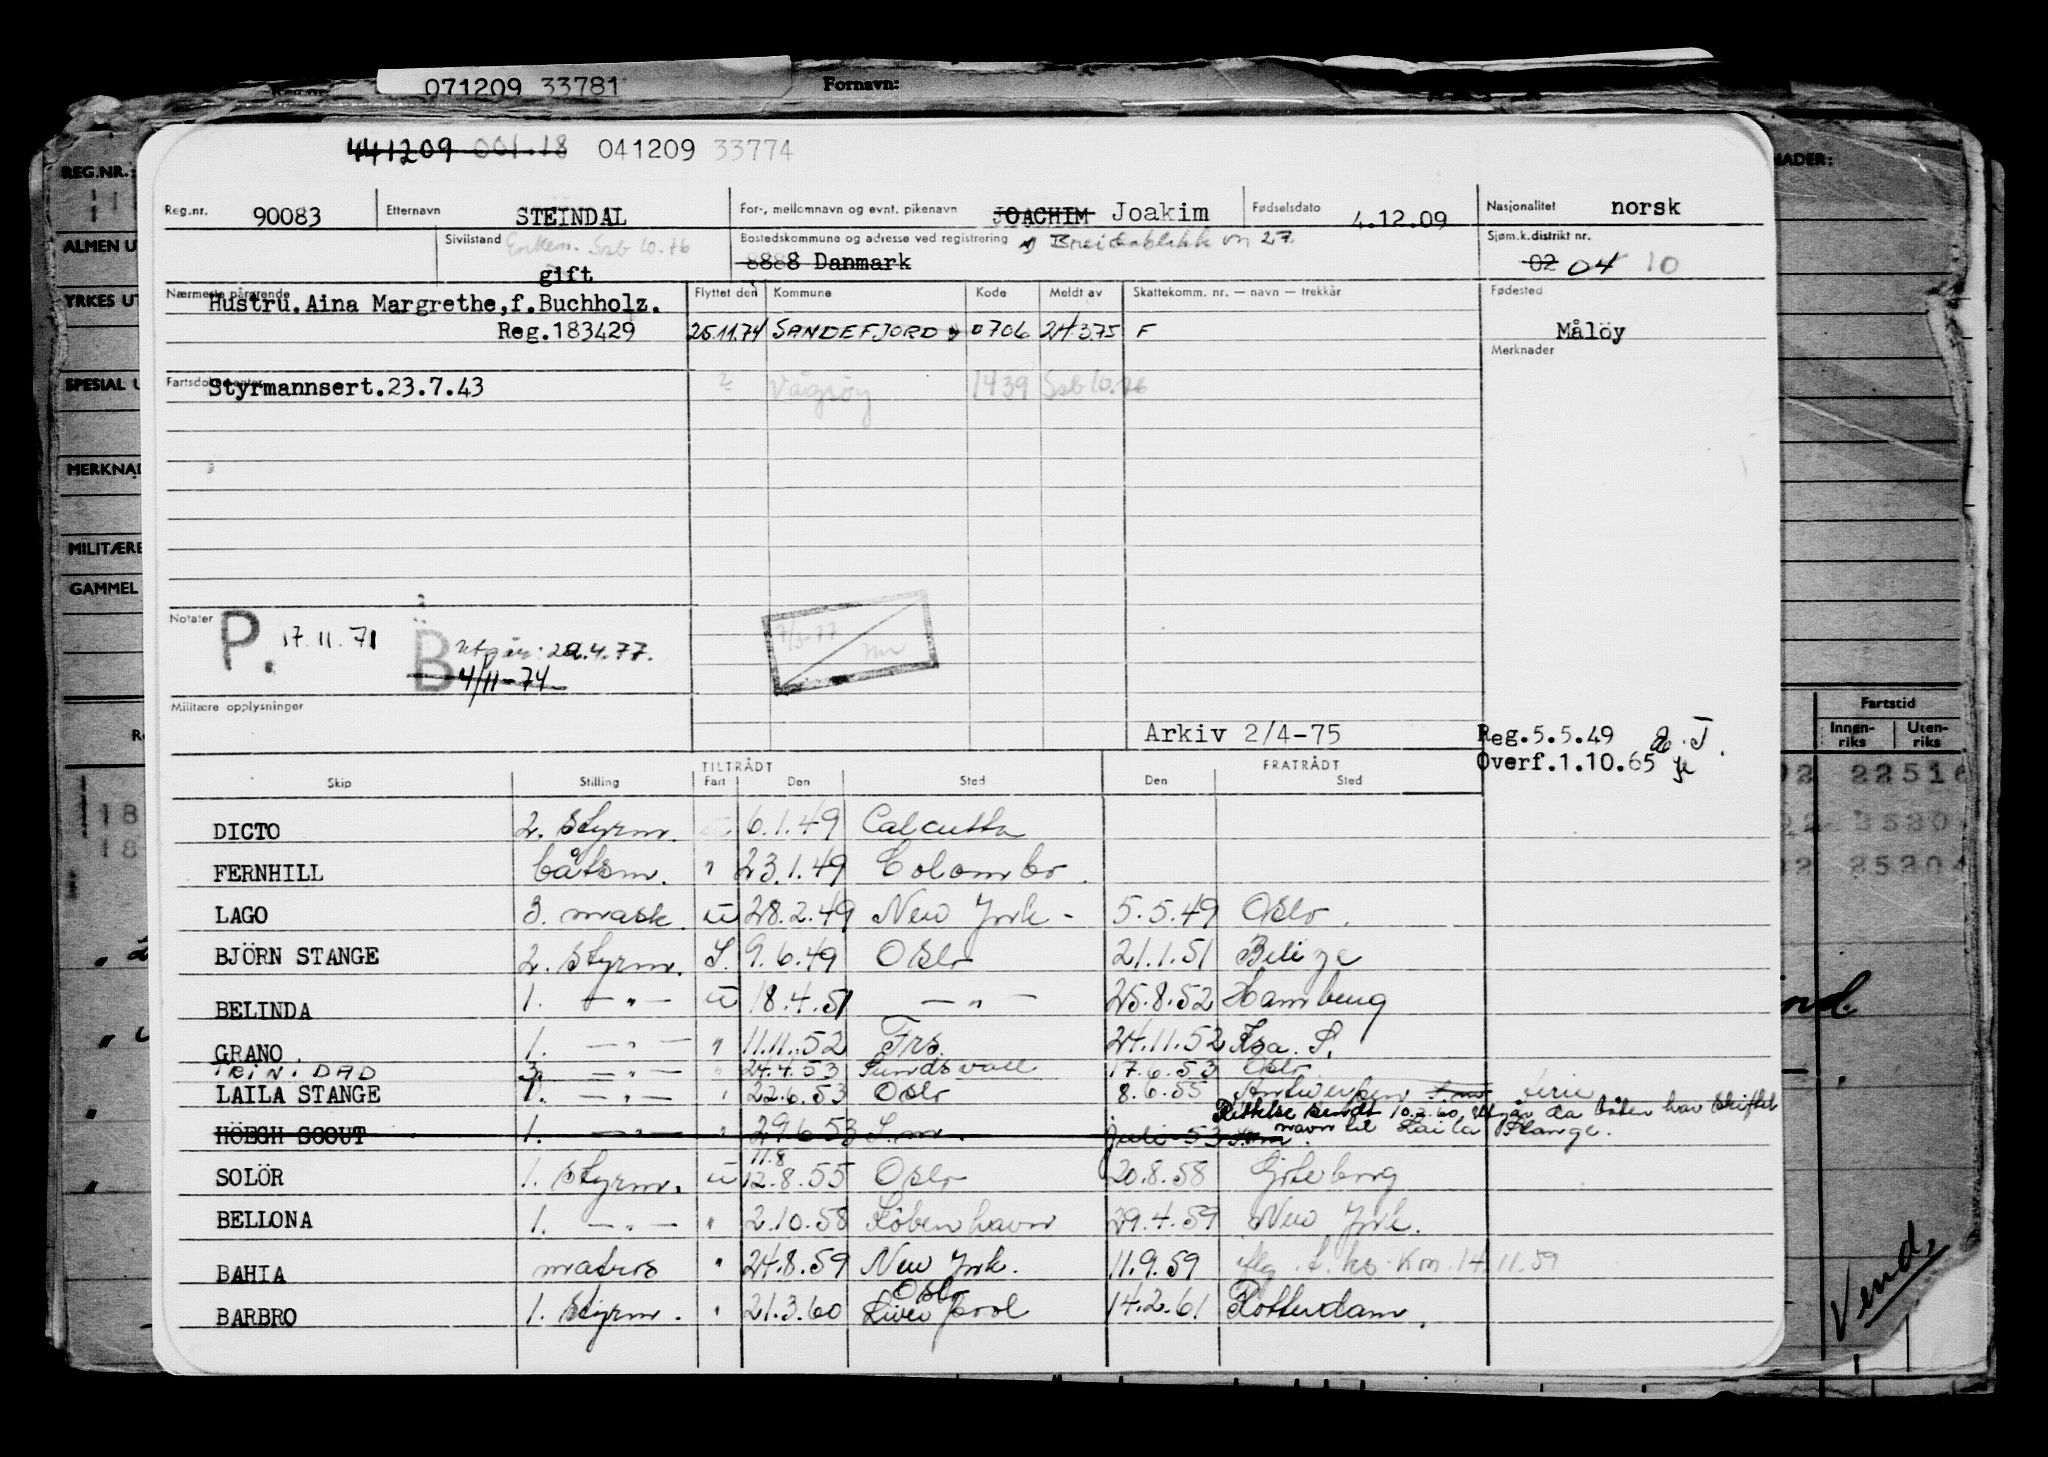 071209 33781 Fornavn:
441209 001.18 041209 33774
REG.NR.:
Reg.nr. 90083 Etternavn STEINDAL For-, mellomnavn og evnt. pikenavn JOACHIM Joakim Fødselsdato 4.12.09 Nasjonalitet norsk
ALMEN U
Sivilstand Enkem. Ssb 10.76 gift Bostedskommune og adresse ved registrering Breidablikkvn 27. 8888 Danmark Sjøm.k.distrikt nr. 02 04 10
YRKES UT
Nærmeste pårørende Flyttet den Kommune Kode Meldt av Skattekomm. nr. — navn — trekkår Fødested
Hustru. Aina Margrethe, f. Buchholz.
Reg.183429 25.11.74 SANDEFJORD 0706 24.3.75 F Målöy
Merknader
SPESIAL U
Fartsdokumenter
Styrmannsert.23.7.43 ? Vågsøy 1439 Ssb 10.76
MERKNAD
MILITÆRE
GAMMEL
Notater P. 17.11.71 B Utgår: 29.4.77. 7/3-77
4/11-74
Militære opplysninger
Fartstid
Innen-riks Uten-riks
Arkiv 2/4-75 Reg.5.5.49
Overf.1.10.65
TILTRÅDT FRATRÅDT
Skip Stilling Fart Den Sted Den Sted
DICTO 2. Styrm. u 6.1.49 Calcutta
FERNHILL båtsm. " 23.1.49 Colombo.
LAGO 3. mask. u 28.2.49 New York - 5.5.49 Oslo.
BJÖRN STANGE 2. Styrm. S. 9.6.49 Oslo 21.1.51 Belize
BELINDA 1. — " — u 18.4.51 — " — 25.8.52 Hamburg
GRANO. 1. — " — " 11.11.52 Frs. 24.11.52 Ksa. S.
TRINIDAD 3. — " — " 24.4.53 Sundsvall 17.6.53 Oslo
LAILA STANGE 1. — " — " 22.6.53 Oslo 8.6.55 Antwerpen ferie
Rettelse sendt 10.2.60, Utgår da båten har skiftet
HÖEGH SCOUT 1. — " — " 29.6.53 S.m. juli 53 S.m. navn til Laila Stange.
11.8
SOLÖR 1. Styrm. u 12.8.55 Oslo 20.8.58 Göteborg
BELLONA 1. — " — " 2.10.58 København 29.4.59 New York.
BAHIA matros " 24.8.59 New York. 11.9.59 14.11.59
Oslo
BARBRO 1. Styrm. " 21.3.60 Liverpool 14.2.61 Rotterdam.
Vend,